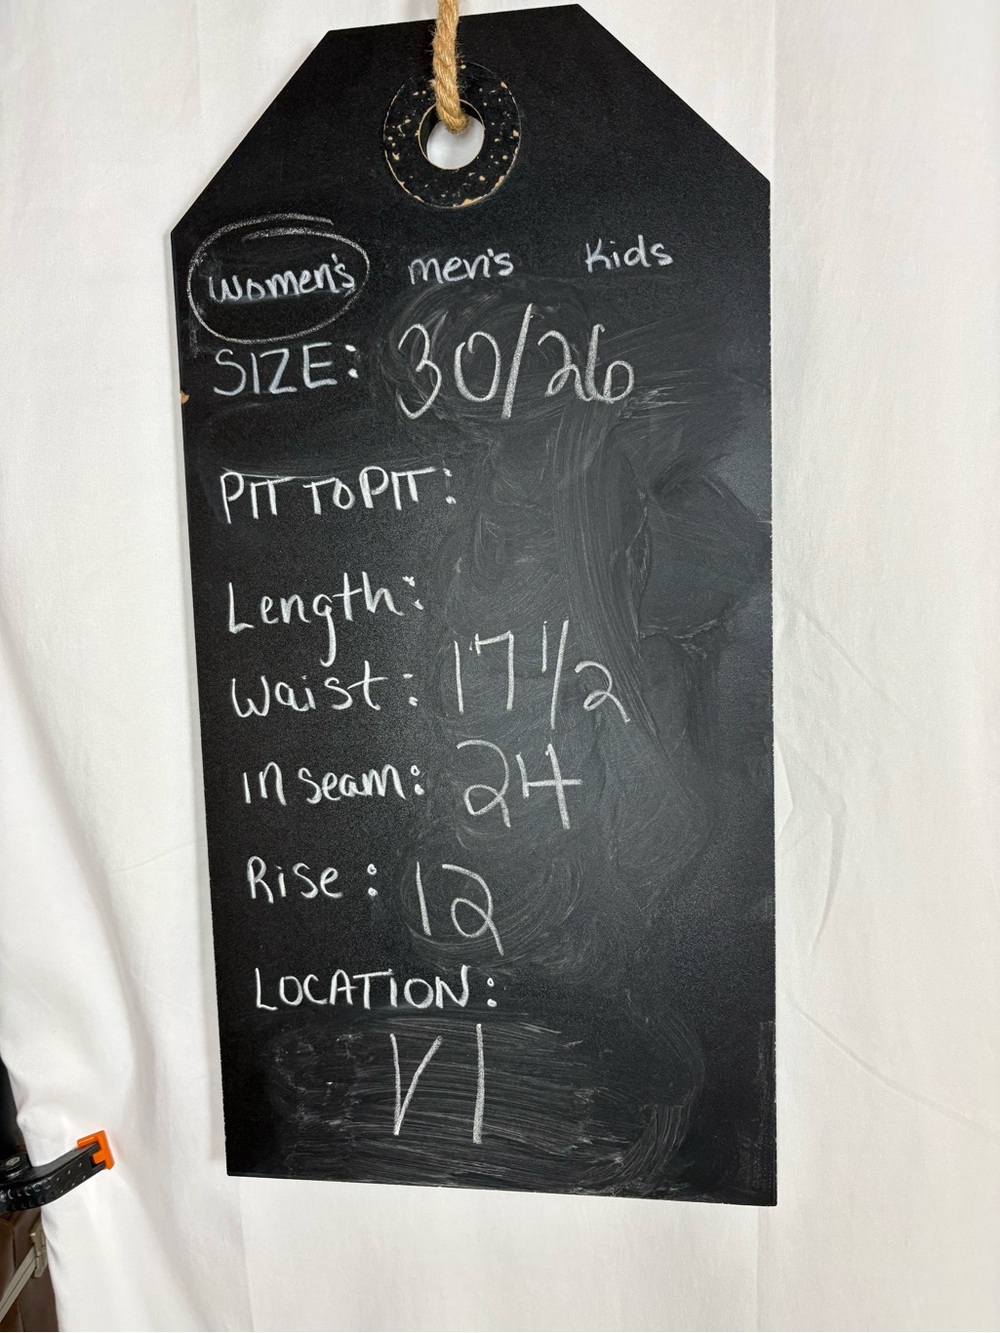 Women's men's Kids
SIZE: 30/26
PIT TO PIT:
Length:
Waist: 17 1/2
in seam: 24
Rise: 12
LOCATION:
V1